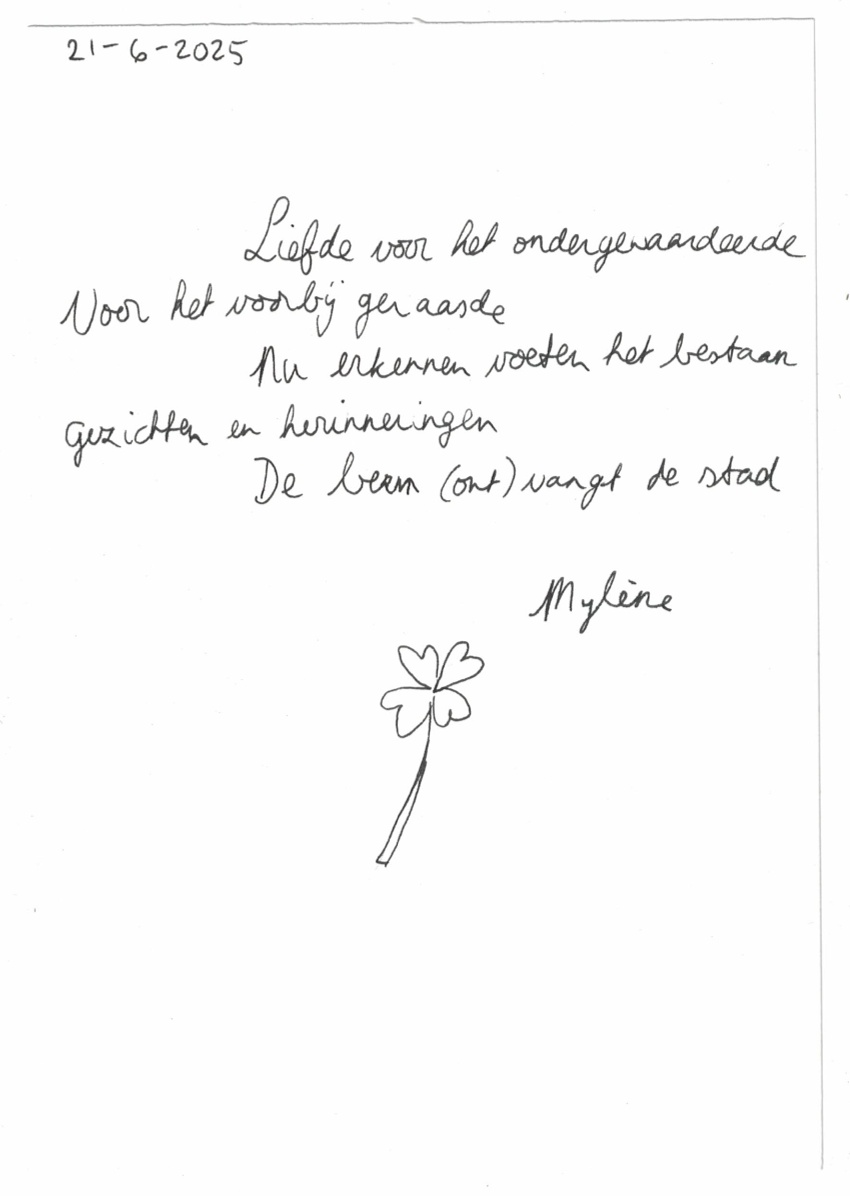 21-6-2025
Liefde voor het ondergewaardeerde
Voor het voorbij geraasde
Nu erkennen voeten het bestaan
gezichten en herinneringen
De berm (ont)vangt de stad
Mylène